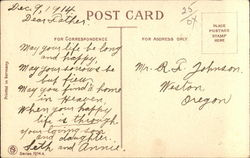 Dec. 9, 1914.
Dear Father.
POST CARD
25
FOR CORRESPONDENCE
FOR ADDRESS ONLY
PLACE
POSTAGE
STAMP
HERE
May your life be long
and happy.
May your sorrows be
but few.
May you find a home
in Heaven.
When your happy
life is through
your loving son
and daughter.
Seth and Annie.
Mr. R. F. Johnson
Weston
Oregon
Printed in Germany.